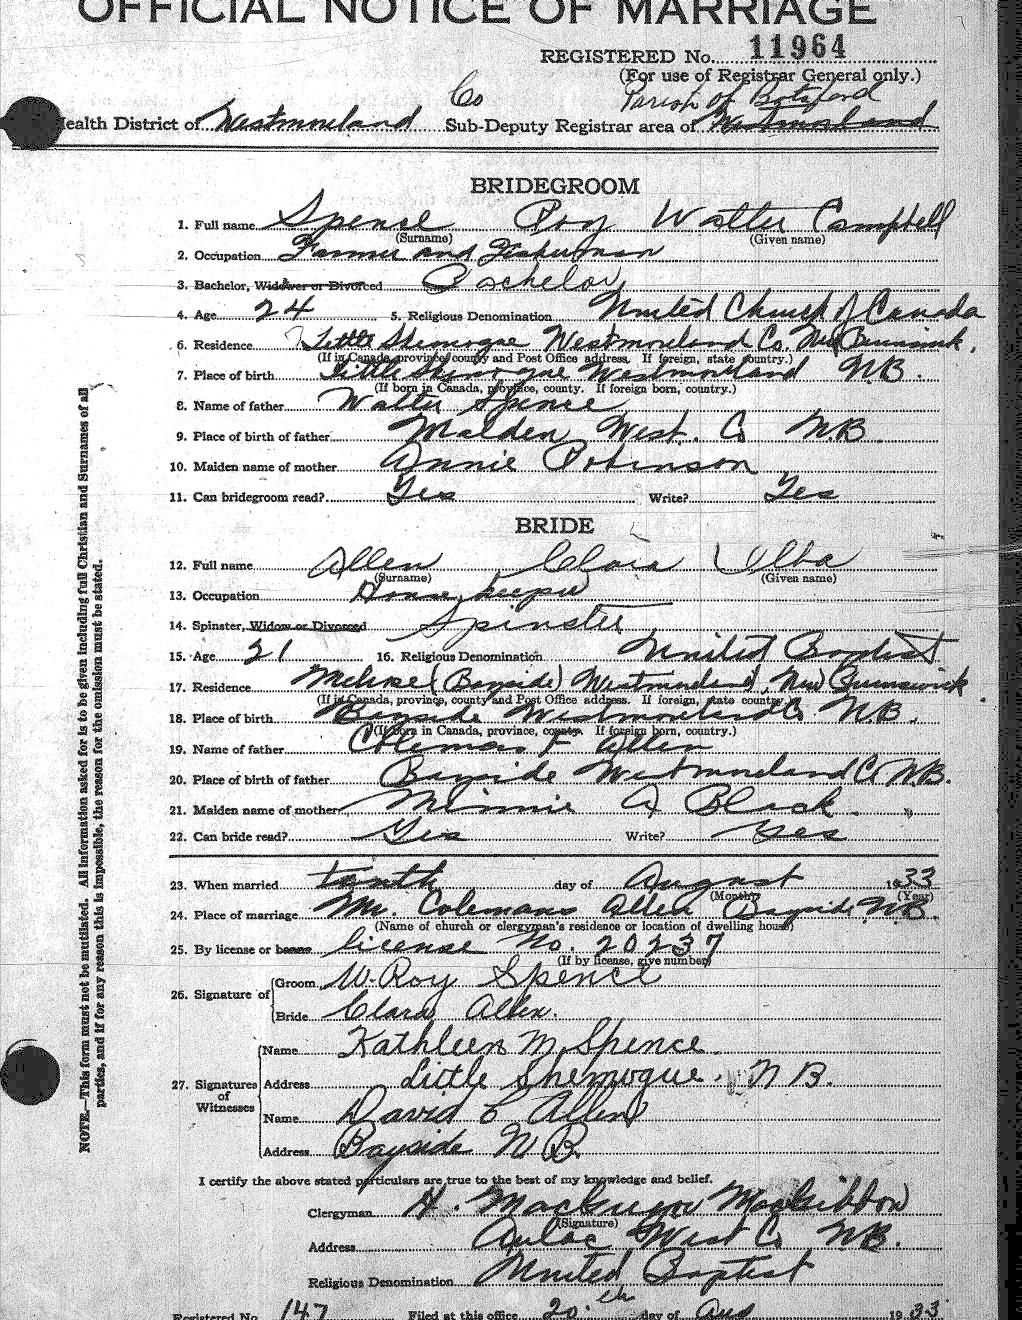 OFFICIAL NOTICE OF MARRIAGE
REGISTERED No. 11964
(For use of Registrar General only.)
Co Parish of Botsford
Health District of Westmoreland Sub-Deputy Registrar area of Westmorland
BRIDEGROOM
1. Full name Spence Roy Walter Campbell
(Surname) (Given name)
2. Occupation Farmer and Fisherman
3. Bachelor, Widower or Divorced Bachelor
4. Age 24 5. Religious Denomination United Church of Canada
6. Residence Little Shemogue Westmoreland Co. New Brunswick.
(If in Canada, province, county and Post Office address. If foreign, state country.)
7. Place of birth Little Shemogue Westmoreland N.B.
(If born in Canada, province, county. If foreign born, country.)
8. Name of father Walter Spence
9. Place of birth of father Malden West. Co N.B.
10. Maiden name of mother Annie Robinson
11. Can bridegroom read? Yes Write? Yes
BRIDE
12. Full name Allen Clara Elba
(Surname) (Given name)
13. Occupation House keeper
14. Spinster, Widow or Divorced Spinster
15. Age 21 16. Religious Denomination United Baptist
17. Residence Melrose (Bayside) Westmoreland, New Brunswick
(If in Canada, province, county and Post Office address. If foreign, state country.)
18. Place of birth Bayside Westmoreland Co N.B.
(If born in Canada, province, county. If foreign born, country.)
19. Name of father Coleman F Allen
20. Place of birth of father Bayside Westmoreland Co N.B.
21. Maiden name of mother Minnie A Black
22. Can bride read? Yes Write? Yes
23. When married tenth day of August 1933
(Month) (Year)
24. Place of marriage Mr. Colemans Allen Bayside N.B.
(Name of church or clergyman's residence or location of dwelling house)
25. By license or banns license No. 20237
(If by license, give number)
26. Signature of
Groom W. Roy Spence
Bride Clara Allen.
27. Signatures of Witnesses
Name Kathleen M. Spence.
Address Little Shemogue. N B.
Name David E Allen
Address Bayside N B.
I certify the above stated particulars are true to the best of my knowledge and belief.
Clergyman H. MacGregor MacGibbon
(Signature)
Address Aulac West Co N.B.
Religious Denomination United Baptist
Registered No. 147 Filed at this office 20th day of Aug 1933
NOTE.—This form must not be mutilated. All information asked for is to be given including full Christian and Surnames of all
parties, and if for any reason this is impossible, the reason for the omission must be stated.